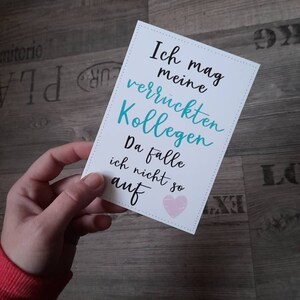 Ich mag
meine
verrückten
Kollegen
Da falle
ich nicht so
auf